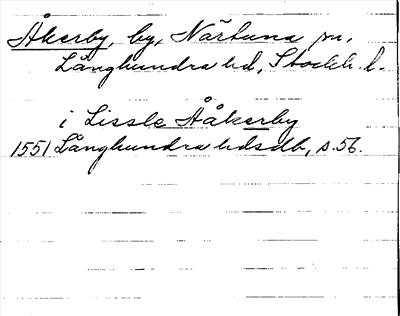 Åkerby, by, Närtuna sn,
Långhundra hd, Stockh. l.
i Lissle Ååkerby
1551 Långhundra hdsdb, s. 56.